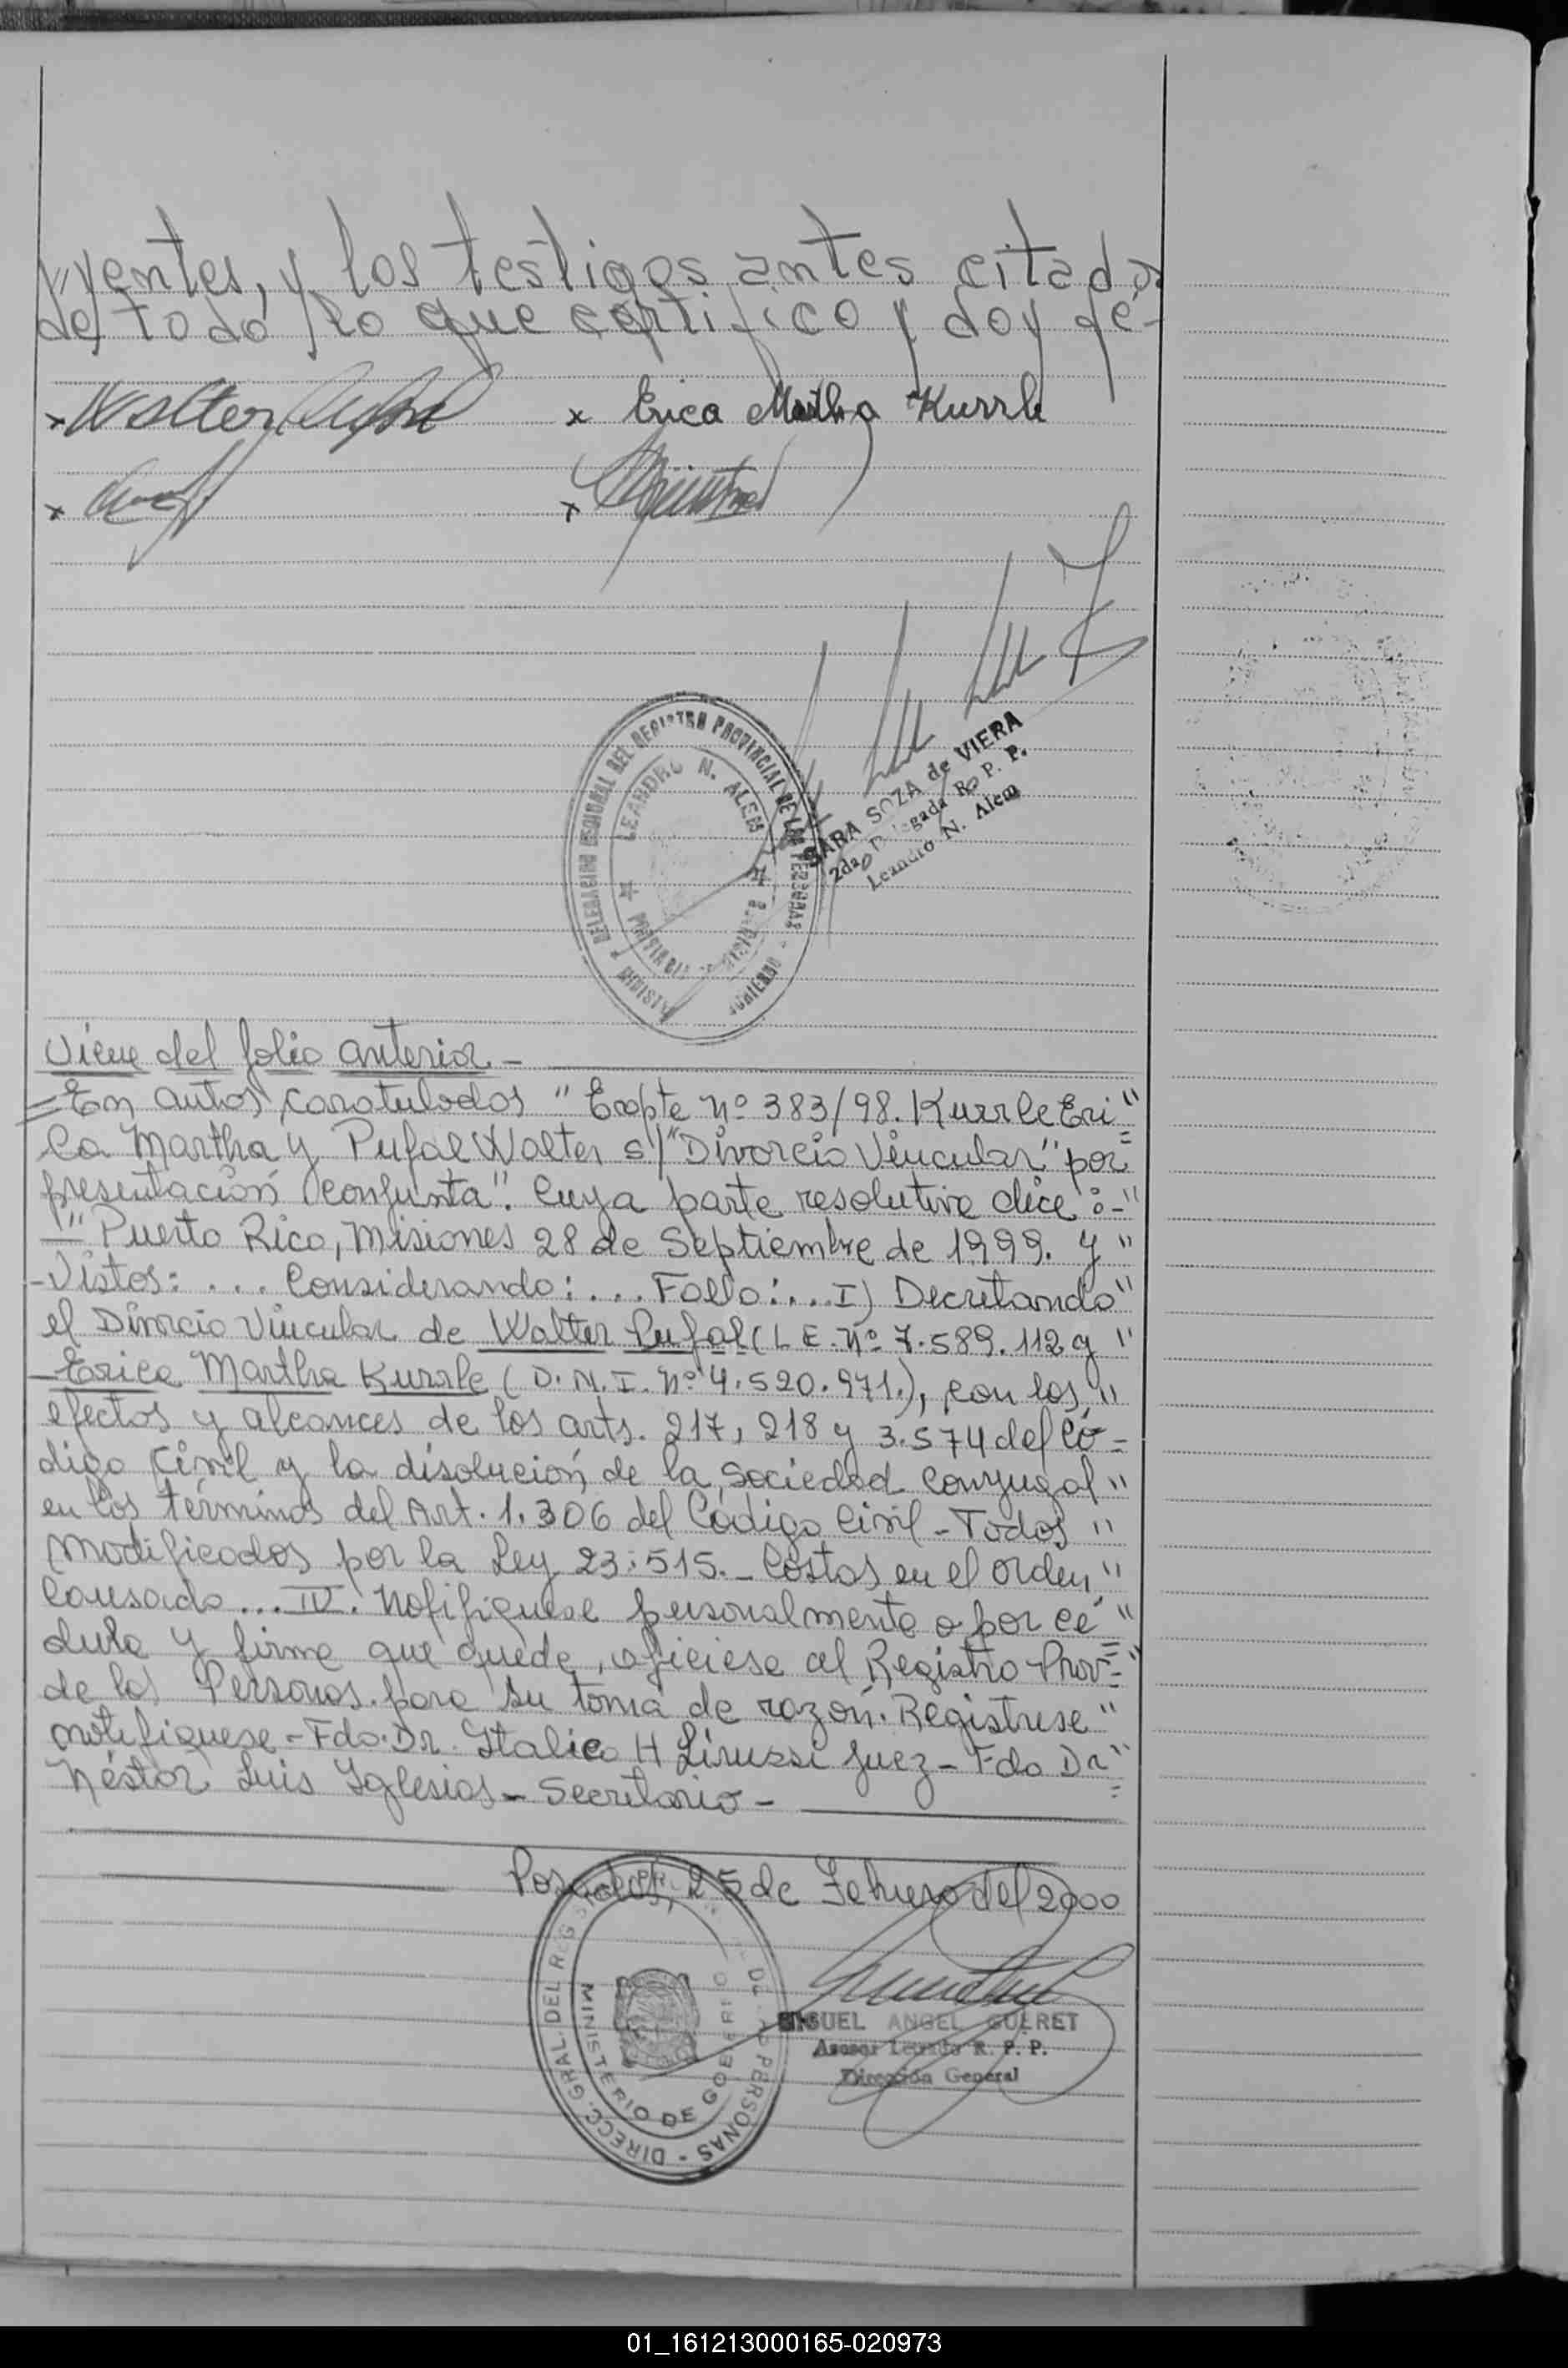 yentes, y los testigos antes citados
de todo lo que certifico y doy fé-
x Walter Pufal x Erica Martha Kurrle
x x
DELEGACION REGIONAL DEL REGISTRO PROVINCIAL DE LAS PERSONAS
LEANDRO N. ALEM
SARA SOZA de VIERA
2da Delegada R. P. P.
Leandro N. Alem
Viene del folio anterior -
= En autos caratulados "Expte nº 383/98. Kurrle Eri"
ca Martha y Pufal Walter s/ "Divorcio Vincular" por
presentación conjunta". Cuya parte resolutiva dice :-"
-"Puerto Rico, Misiones 28 de Septiembre de 1999. y"
-Vistos: ... Considerando: ... Fallo: ... I) Decretando"
el Divorcio Vincular de Walter Pufal (L E. Nº 7.589.112 y "
-Erica Martha Kurrle (D.N.I. Nº 4.520.971.), con los "
efectos y alcances de los arts. 217, 218 y 3.574 del Có=
digo Civil y la disolución de la Sociedad Conyugal "
en los términos del Art. 1.306 del Código Civil - Todos "
modificados por la Ley 23.515. - Costas en el orden "
Causado ... IV. Nofifiquese personalmente o por cé "
dula y firme que quede, ofíciese al Registro Prov= "
de las Personas para su toma de razón. Registrese "
notifiquese - Fdo. Dr. Italico H Lirussi Juez - Fdo Dr "
Néstor Luis Iglesias - Secretario -
Posadas, 25 de Febrero del 2000
DIRECC. GRAL. DEL REGISTRO PROVINCIAL DE LAS PERSONAS -
MINISTERIO DE GOBIERNO
MIGUEL ANGEL GUERET
Asesor Letrado R. P. P.
Dirección General
01_161213000165-020973